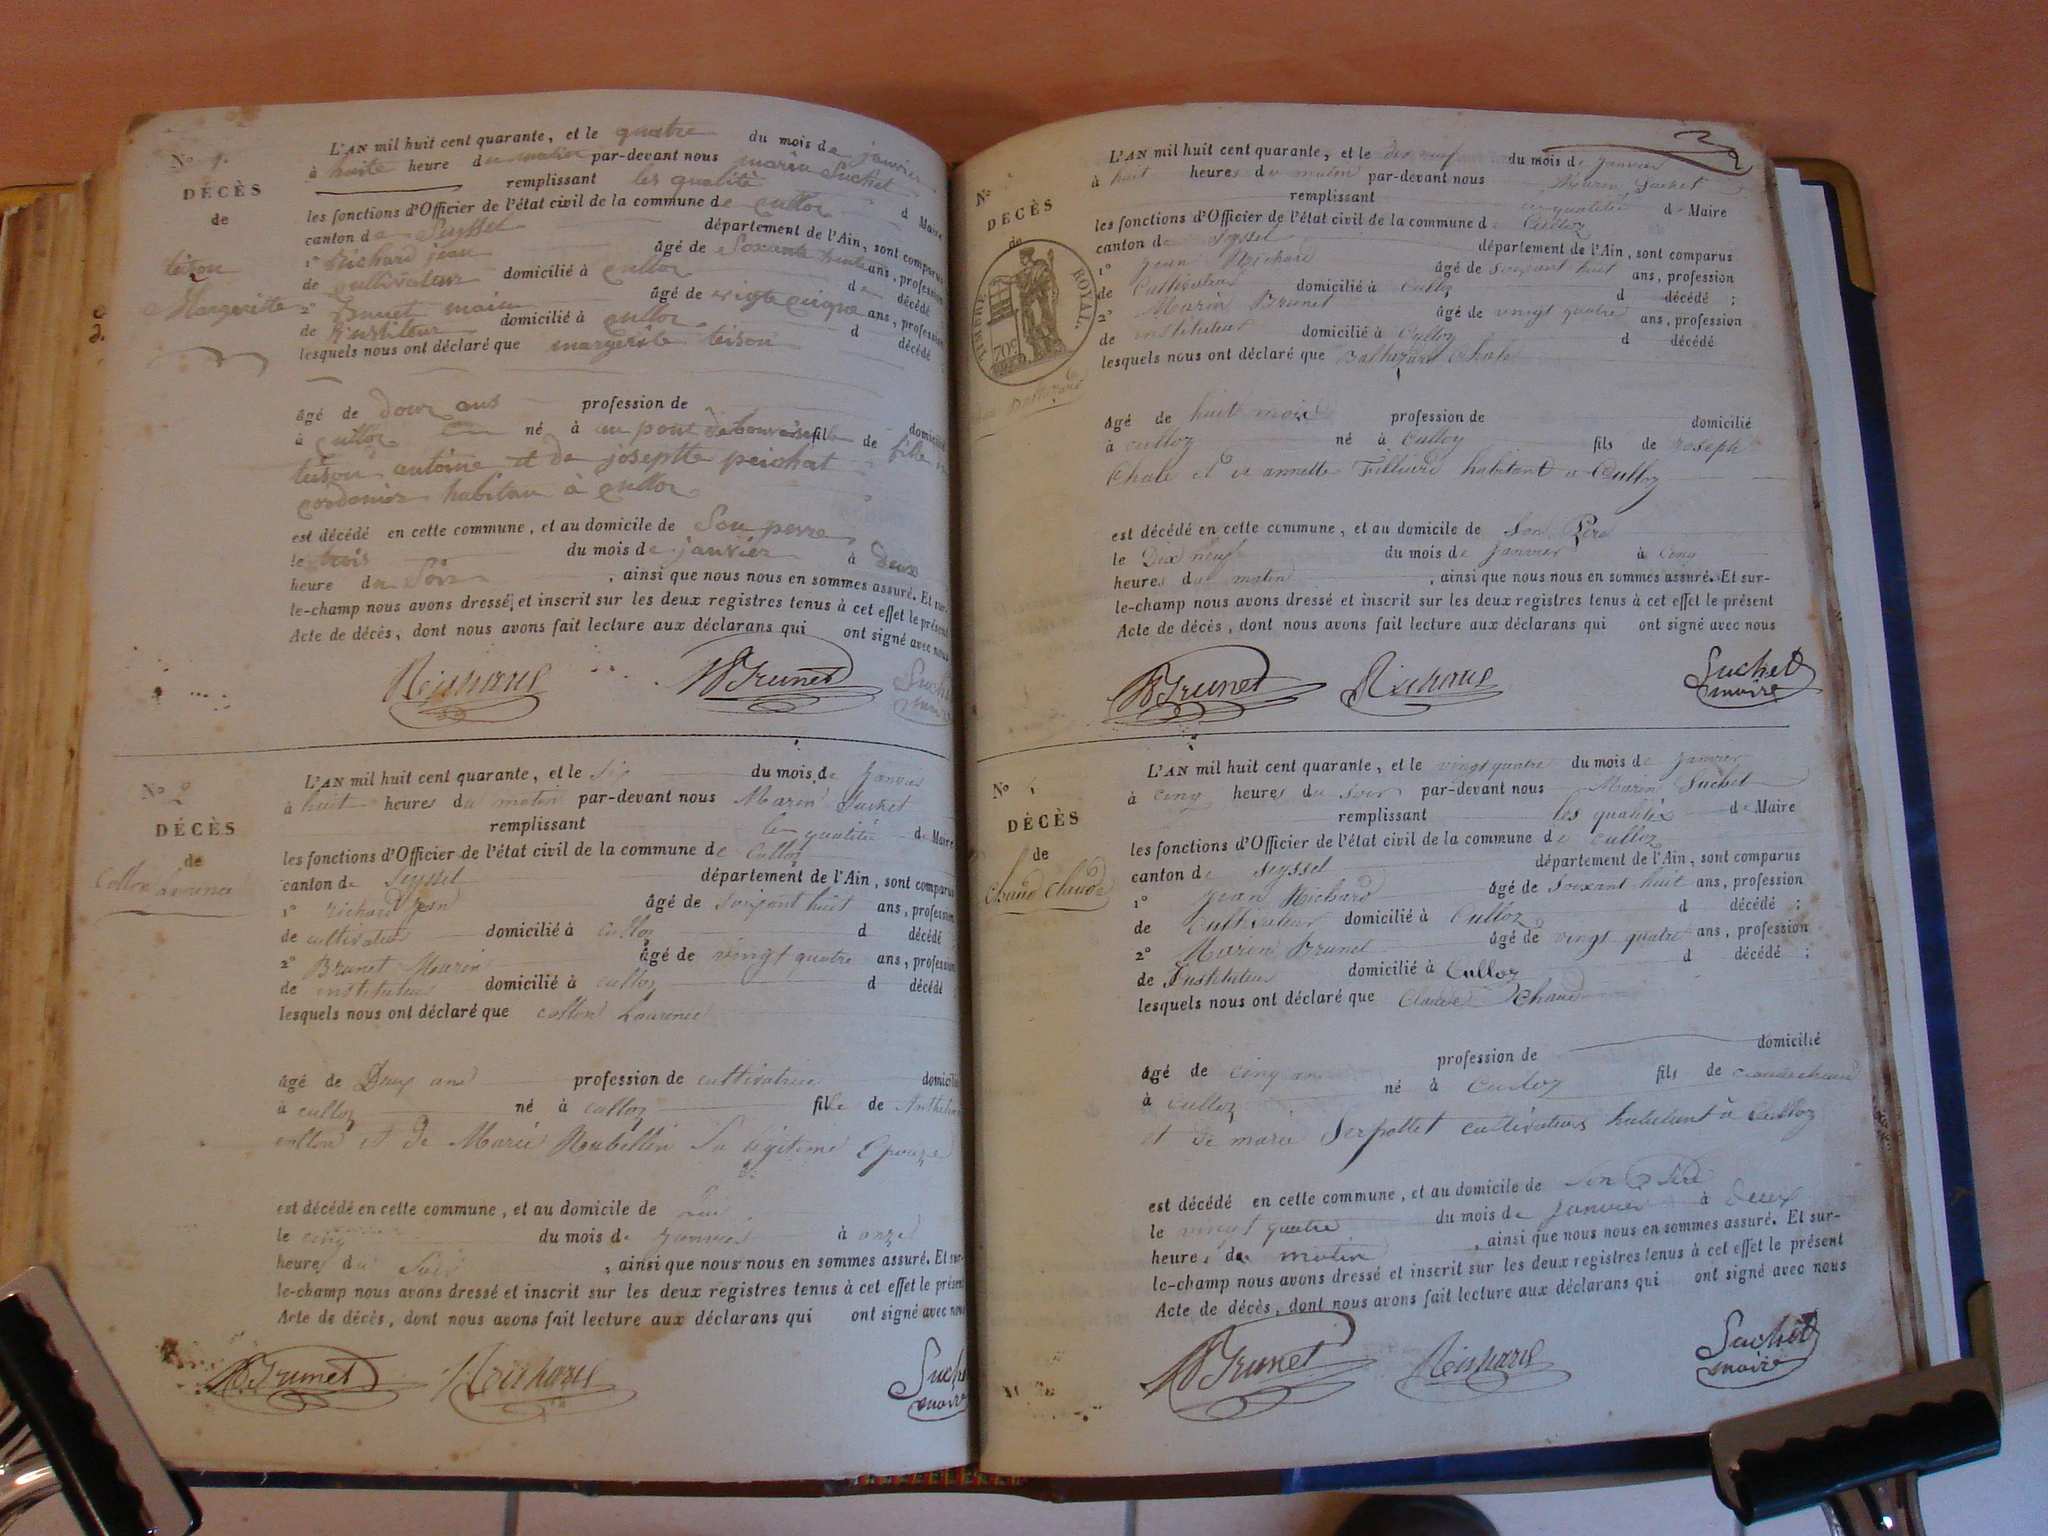 No 1.
DÉCÈS
de
teison
Margeritte
L'AN mil huit cent quarante, et le quatre du mois de janvier
à huite heure du matin par-devant nous marin Suchet
remplissant les qualité de Maire
les fonctions d'Officier de l'état civil de la commune de culloz
canton de Seyssel département de l'Ain, sont comparus
1° Richard jean âgé de Soxante huite ans, profession
de cultivateur domicilié à culloz d décédé ;
2° Brunet marin âgé de vigte cinque ans, profession
de Instituteur domicilié à culloz d décédé
lesquels nous ont déclaré que margerite teison
âgé de douz ans profession de domicilié
à culloz né à au pont de bouvoisin fil de fille
teison antoine et de josephte peichat
cordonier habitan à culloz
est décédé en cette commune, et au domicile de Son perre
le trois du mois de janvier à deux
heure du Soir , ainsi que nous nous en sommes assuré. Et sur-
le-champ nous avons dressé et inscrit sur les deux registres tenus à cet effet le présent
Acte de décès, dont nous avons fait lecture aux déclarans qui ont signé avec nous
Richard Brunet Suchet
maire
No 2
DÉCÈS
de
Collon Laurence
L'AN mil huit cent quarante, et le six du mois de Janvier
à huit heures du matin par-devant nous Marin Suchet
remplissant les qualités de Maire
les fonctions d'Officier de l'état civil de la commune de Culloz
canton de Seyssel département de l'Ain, sont comparus
1° Richard Jean âgé de Soixant huit ans, profession
de cultivateur domicilié à Culloz d décédé ;
2° Brunet Marin âgé de vingt quatre ans, profession
de instituteur domicilié à culloz d décédé ;
lesquels nous ont déclaré que collon Laurence
âgé de Deux ans profession de cultivatrice domicilié
à culloz né à culloz fille de Anthelme
collon et de Marie Roubellin Sa légitime Epouze
est décédé en cette commune, et au domicile de
le cinq du mois de Janvier à onze
heures du Soir , ainsi que nous nous en sommes assuré. Et sur-
le-champ nous avons dressé et inscrit sur les deux registres tenus à cet effet le présent
Acte de décès, dont nous avons fait lecture aux déclarans qui ont signé avec nous
Brunet Richard Suchet
maire
2
No
DÉCÈS
de
TIMBRE ROYAL
70c
Balthazard
L'AN mil huit cent quarante, et le dix neuf du mois de Janvier
à huit heures du matin par-devant nous Marin Suchet
remplissant les qualités de Maire
les fonctions d'Officier de l'état civil de la commune de Culloz
canton de Seyssel département de l'Ain, sont comparus
1° Jean Richard âgé de soixant huit ans, profession
de Cultivateur domicilié à Culloz d décédé ;
2° Marin Brunet âgé de vingt quatre ans, profession
de instituteur domicilié à Culloz d décédé
lesquels nous ont déclaré que Balthazard Chale
âgé de huit mois profession de domicilié
à culloz né à Culloz fils de Joseph
Chale et de annette Filliard habitant à Culloz
est décédé en cette commune, et au domicile de Son Père
le Dix neuf du mois de Janvier à cinq
heures du matin , ainsi que nous nous en sommes assuré. Et sur-
le-champ nous avons dressé et inscrit sur les deux registres tenus à cet effet le présent
Acte de décès, dont nous avons fait lecture aux déclarans qui ont signé avec nous
Brunet Richard Suchet
maire
No
DÉCÈS
de
Chaud Claude
L'AN mil huit cent quarante, et le vingt quatre du mois de Janvier
à cinq heures du soir par-devant nous Marin Suchet
remplissant les qualités de Maire
les fonctions d'Officier de l'état civil de la commune de culloz
canton de Seyssel département de l'Ain, sont comparus
1° Jean Richard âgé de Soixant huit ans, profession
de Cultivateur domicilié à Culloz d décédé ;
2° Marin Brunet âgé de vingt quatre ans, profession
de Instituteur domicilié à Culloz d décédé ;
lesquels nous ont déclaré que Claude Chaud
âgé de cinq an profession de domicilié
à culloz né à Culloz fils de claude chaud
et de marie Serpollet cultivateurs habitant à Culloz
est décédé en cette commune, et au domicile de Son Père
le vingt quatre du mois de Janvier à deux
heures du matin , ainsi que nous nous en sommes assuré. Et sur-
le-champ nous avons dressé et inscrit sur les deux registres tenus à cet effet le présent
Acte de décès, dont nous avons fait lecture aux déclarans qui ont signé avec nous
Brunet Richard Suchet
maire